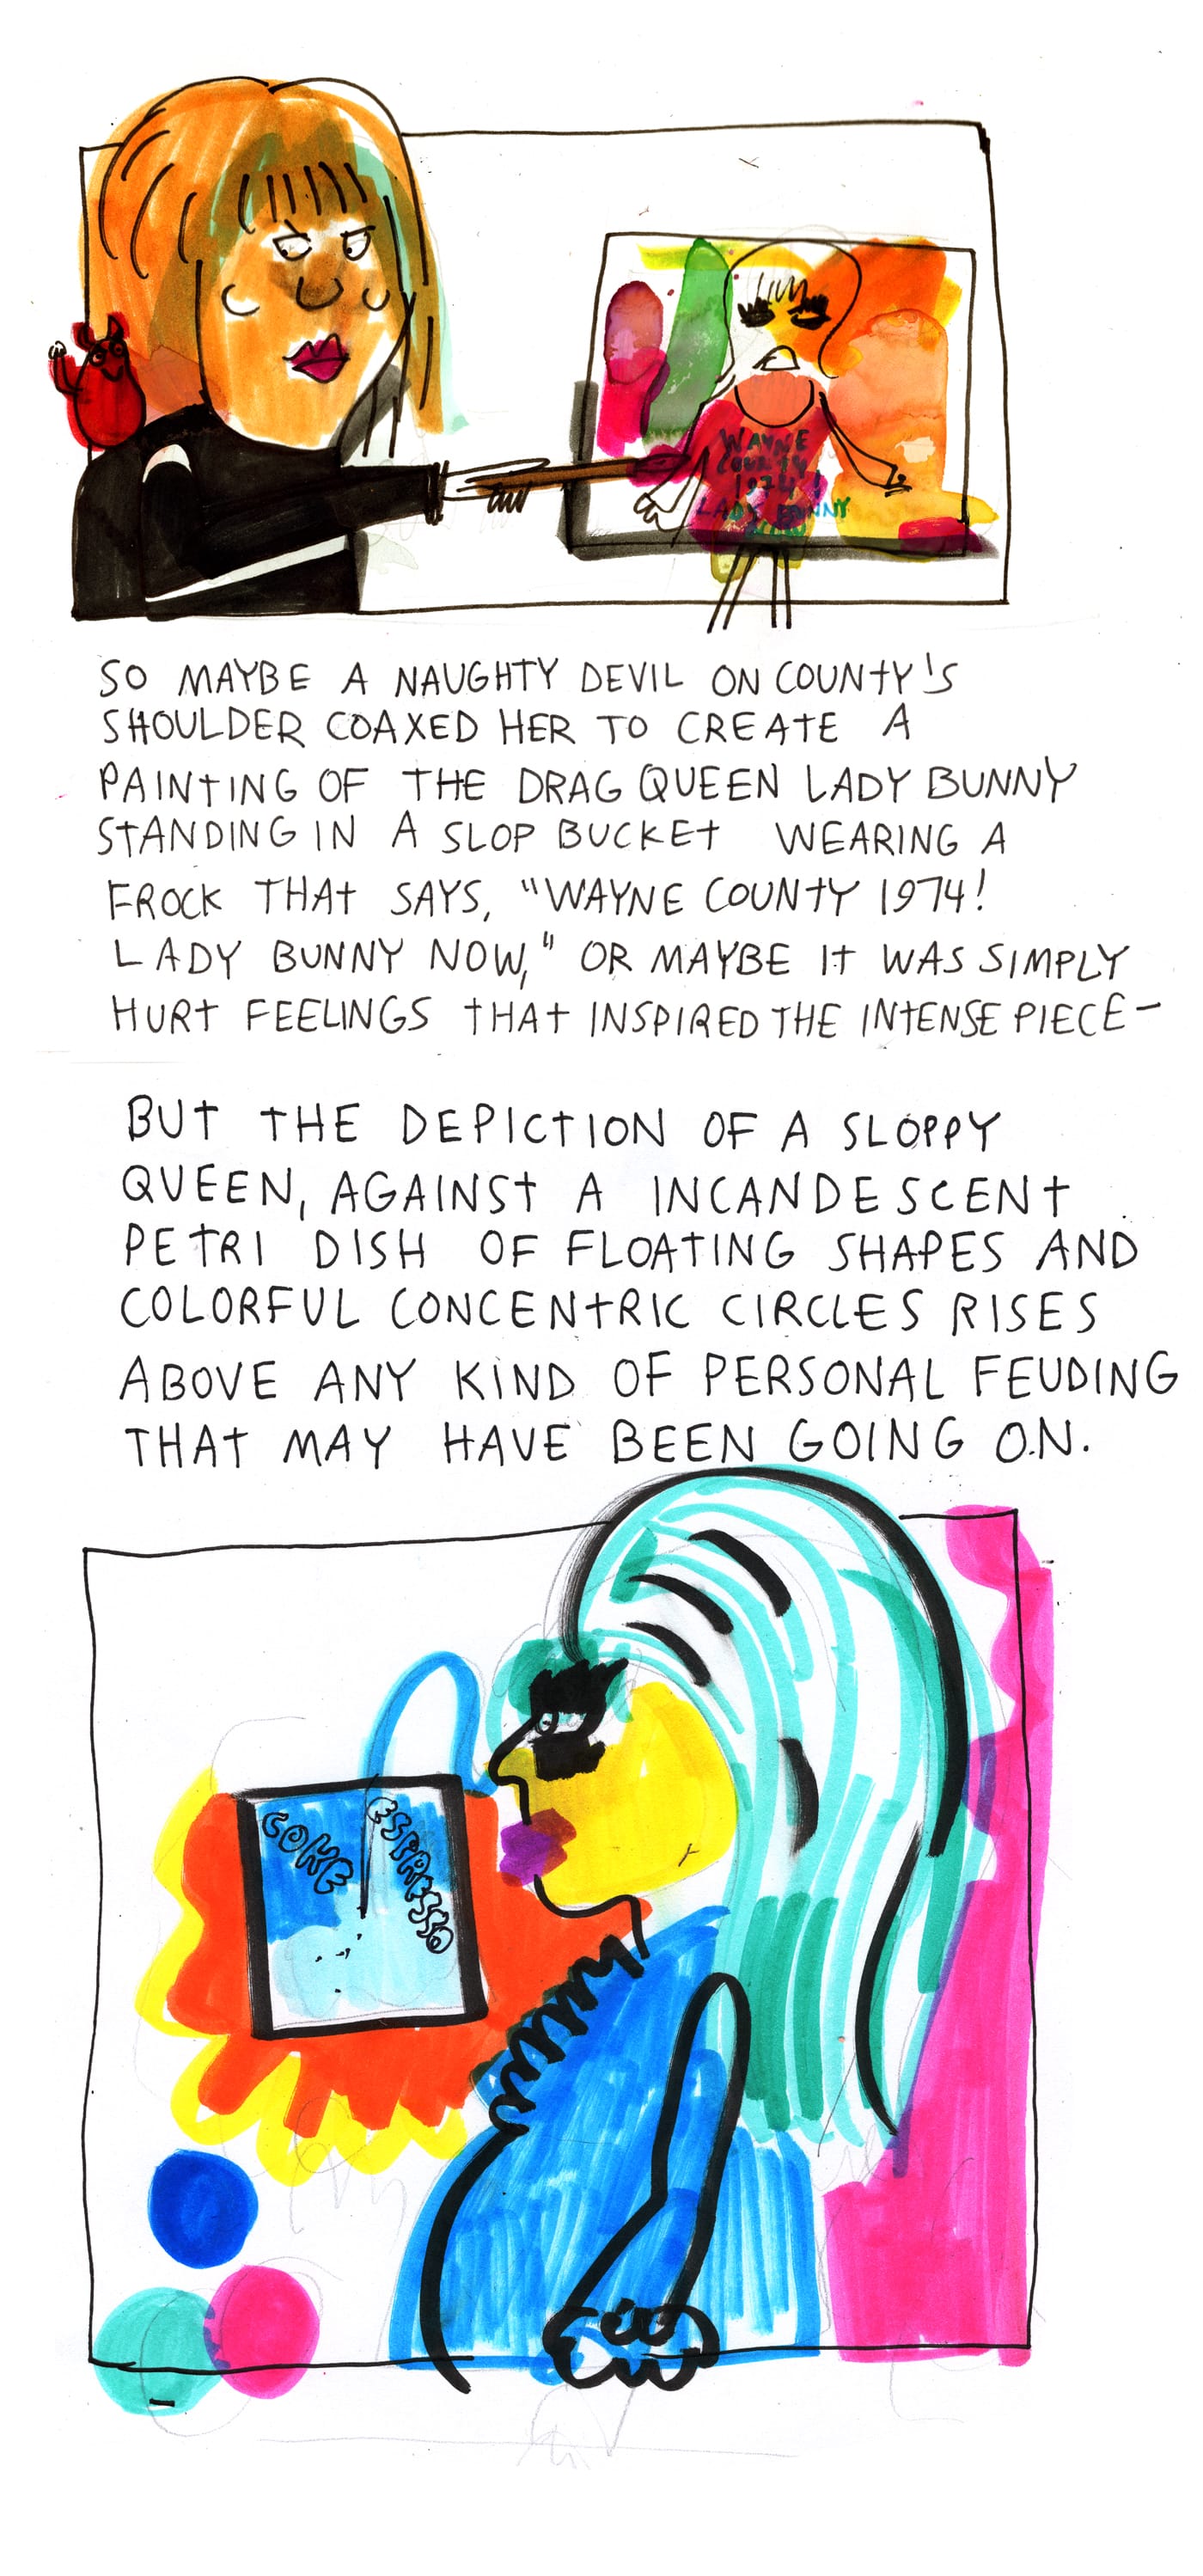 WAYNE
COUNTY
1974!
LADY BUNNY
SO MAYBE A NAUGHTY DEVIL ON COUNTY'S
SHOULDER COAXED HER TO CREATE A
PAINTING OF THE DRAG QUEEN LADY BUNNY
STANDING IN A SLOP BUCKET WEARING A
FROCK THAT SAYS, "WAYNE COUNTY 1974!
LADY BUNNY NOW," OR MAYBE IT WAS SIMPLY
HURT FEELINGS THAT INSPIRED THE INTENSE PIECE-
BUT THE DEPICTION OF A SLOPPY
QUEEN, AGAINST A INCANDESCENT
PETRI DISH OF FLOATING SHAPES AND
COLORFUL CONCENTRIC CIRCLES RISES
ABOVE ANY KIND OF PERSONAL FEUDING
THAT MAY HAVE BEEN GOING ON.
COKE
ESPRESSO